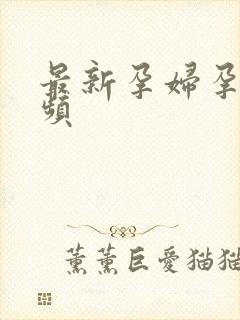 最新孕婦孕
頻
薰薰巨愛猫猫